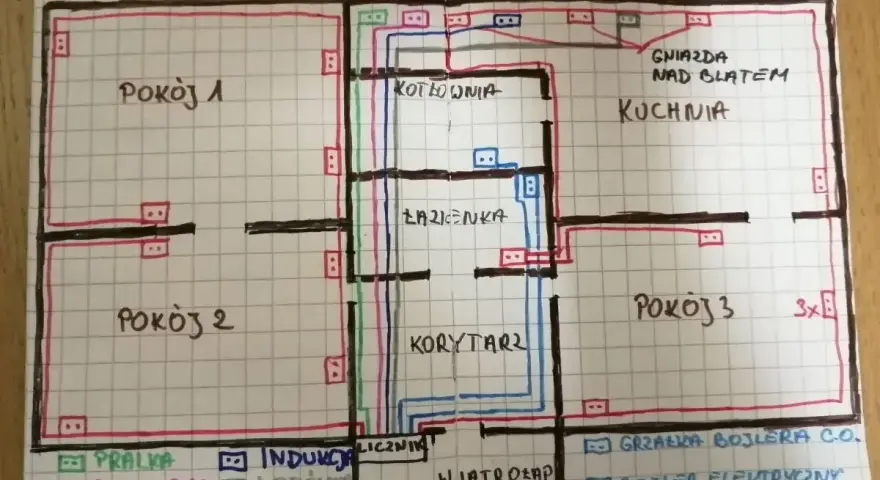 GNIAZDA
NAD BLATEM
POKÓJ 1
KOTŁOWNIA
KUCHNIA
ŁAZIENKA
POKÓJ 2
POKÓJ 3
3x
KORYTARZ
LICZNIK
PRALKA
INDUKCJA
GRZAŁKA BOJLERA C.O.
WIATROŁAP
ELEKTRYCZNY